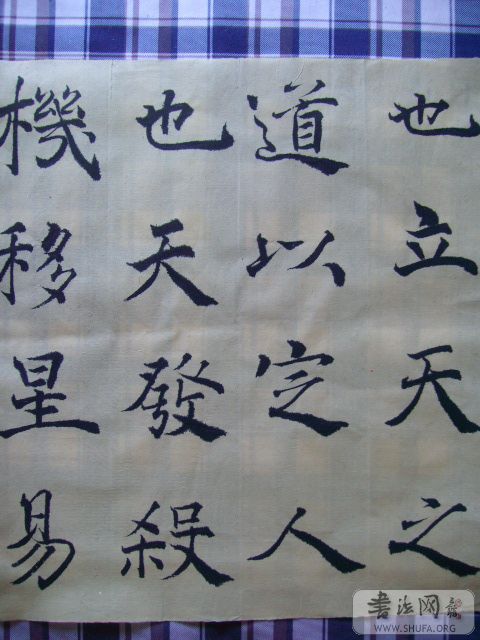 也立天之
道以定人
也天發殺
機移星易
書法网
WWW.SHUFA.ORG